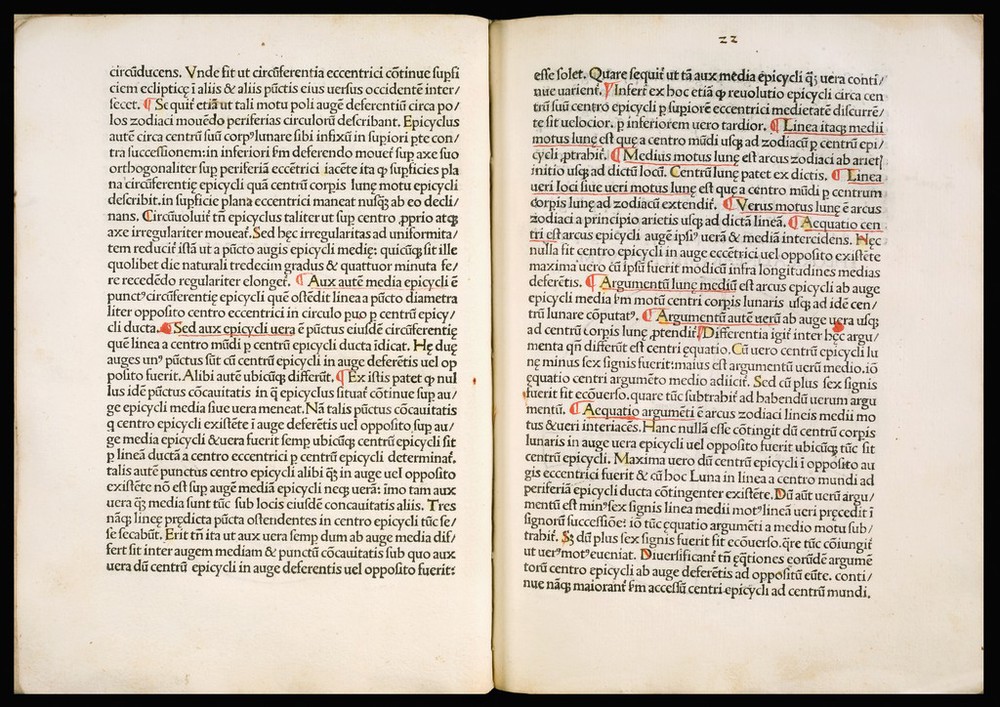 circūducens. Vnde fit ut circūferentia eccentrici cōtinue supſi
ciem eclipticę ī aliis & aliis pūctis eius uersus occidentē inter/
secet. ¶ Sequit̄ etiā ut tali motu poli augē deferentiū circa po/
los zodiaci mouēdo periferias circulorū describant. Epicyclus
autē circa centrū suū corpꝰ lunare sibi infixū in supiori pte con/
tra successionem: in inferiori ſm deferendo mouet̄ sup axe suo
orthogonaliter sup periferiā eccētrici iacēte ita ꝙ supficies pla
na circūferentię epicycli quā centrū corpis lunę motu epicycli
describit. in supficie plana eccentrici maneat nusq̄ ab eo decli/
nans. Circūuoluit̄ tn̄ epicyclus taliter ut sup centro ꝓprio atq;
axe irregulariter moueat̄. Sed hęc irregularitas ad uniformita/
tem reducit̄ istā ut a pūcto augis epicycli medię: quicūq; sit ille
quolibet die naturali tredecim gradus & quattuor minuta fe/
re recedēdo regulariter elonget̄. ¶ Aux autē media epicycli ē
punctꝰ circūferentię epicycli quē ostēdit linea a pūcto diametra
liter opposito centro eccentrici in circulo puo p centrū epicy/
cli ducta. ¶ Sed aux epicycli uera ē pūctus eiusdē circūferentię
quē linea a centro mūdi p centrū epicycli ducta īdicat. Hę duę
auges unꝰ pūctus sūt cū centrū epicycli in auge deferētis uel op
posito fuerit. Alibi autē ubicūq; differūt. ¶ Ex istis patet ꝙ nul
lus idē pūctus cōcauitatis in q̄ epicyclus situat̄ cōtinue sup au/
ge epicycli media siue uera meneat. Nā talis pūctus cōcauitatis
q centro epicycli existēte ī auge deferētis uel opposito sup au/
ge media epicycli & uera fuerit semp ubicūq; centrū epicycli sit
p lineā ductā a centro eccentrici p centrū epicycli determinat̄.
talis autē punctus centro epicycli alibi q̄; in auge uel opposito
existēte nō est sup augē mediā epicycli neq; uerā: imo tam aux
uera q̄; media sunt tūc sub locis eiusdē concauitatis aliis. Tres
nāq; lineę prędicta pūcta ostendentes in centro epicycli tūc se/
se secabūt. Erit tn̄ ita ut aux uera semp dum ab auge media dif/
fert sit inter augem mediam & punctū cōcauitatis sub quo aux
uera dū centrū epicycli in auge deferentis uel opposito fuerit:
22
esse solet. Quare sequit̄ ut tā aux media epicycli q̄; uera conti/
nue uarient̄. ¶ Infert̄ ex hoc etiā ꝙ reuolutio epicycli circa cen
trū suū centro epicycli p supiorē eccentrici medietatē discurrē/
te sit uelocior. p inferiorem uero tardior. ¶ Linea itaq; medii
motus lunę est quę a centro mūdi usq; ad zodiacū p centrū epi/
cycli ꝓtrahit̄. ¶ Medius motus lunę est arcus zodiaci ab ariet̄
initio usq; ad dictū locū. Centrū lunę patet ex dictis. ¶ Linea
ueri loci siue ueri motus lunę est que a centro mūdi p centrum
corpis lunę ad zodiacū extendit̄. ¶ Verus motus lunę ē arcus
zodiaci a principio arietis usq; ad dictā lineā. ¶ Aequatio cen
tri est arcus epicycli augē ipsiꝰ uerā & mediā intercidens. Hęc
nulla fit centro epicycli in auge eccētrici uel opposito existēte
maxima uero cū ipsū fuerit modicū infra longitudines medias
deferētis. ¶ Argumentū lunę mediū est arcus epicycli ab auge
epicycli media ſm motū centri corpis lunaris usq; ad idē cen/
trū lunare cōputatꝰ. ¶ Argumentū autē uerū ab auge uera usq;
ad centrū corpis lunę ꝓtendit̄. ¶ Differentia igit̄ inter hęc argu/
menta qn̄ differūt est centri equatio. Cū uero centrū epicycli lu
nę minus sex signis fuerit: maius est argumentū uerū medio. iō
ęquatio centri argumēto medio adiicit̄. Sed cū plus sex signis
fuerit fit ecōuerso. quare tūc subtrahit̄ ad habendū uerum argu
mentū. ¶ Aequatio argumēti ē arcus zodiaci lineis medii mo
tus & ueri interiacēs. Hanc nullā esse cōtingit dū centrū corpis
lunaris in auge uera epicycli uel opposito fuerit ubicūq; tūc sit
centrū epicycli. Maxima uero dū centrū epicycli ī opposito au
gis eccentrici fuerit & cū hoc Luna in linea a centro mundi ad
periferiā epicycli ducta cōtingenter existēte. Dū aūt uerū argu/
mentū est minꝰ sex signis linea medii motꝰ lineā ueri pręcedit ī
signorū successiōe: iō tūc ęquatio argumēti a medio motu sub/
trahit̄. S; dū plus sex signis fuerit fit ecōuerso. q̄re tūc cōiungit̄
ut uerꝰ motꝰ eueniat. Diuersificant̄ tn̄ ęq̄tiones eorūdē argumē
torū centro epicycli ab auge deferētis ad oppositū eūte. conti/
nue nāq; maiorant̄ ſm accessū centri epicycli ad centrū mundi.